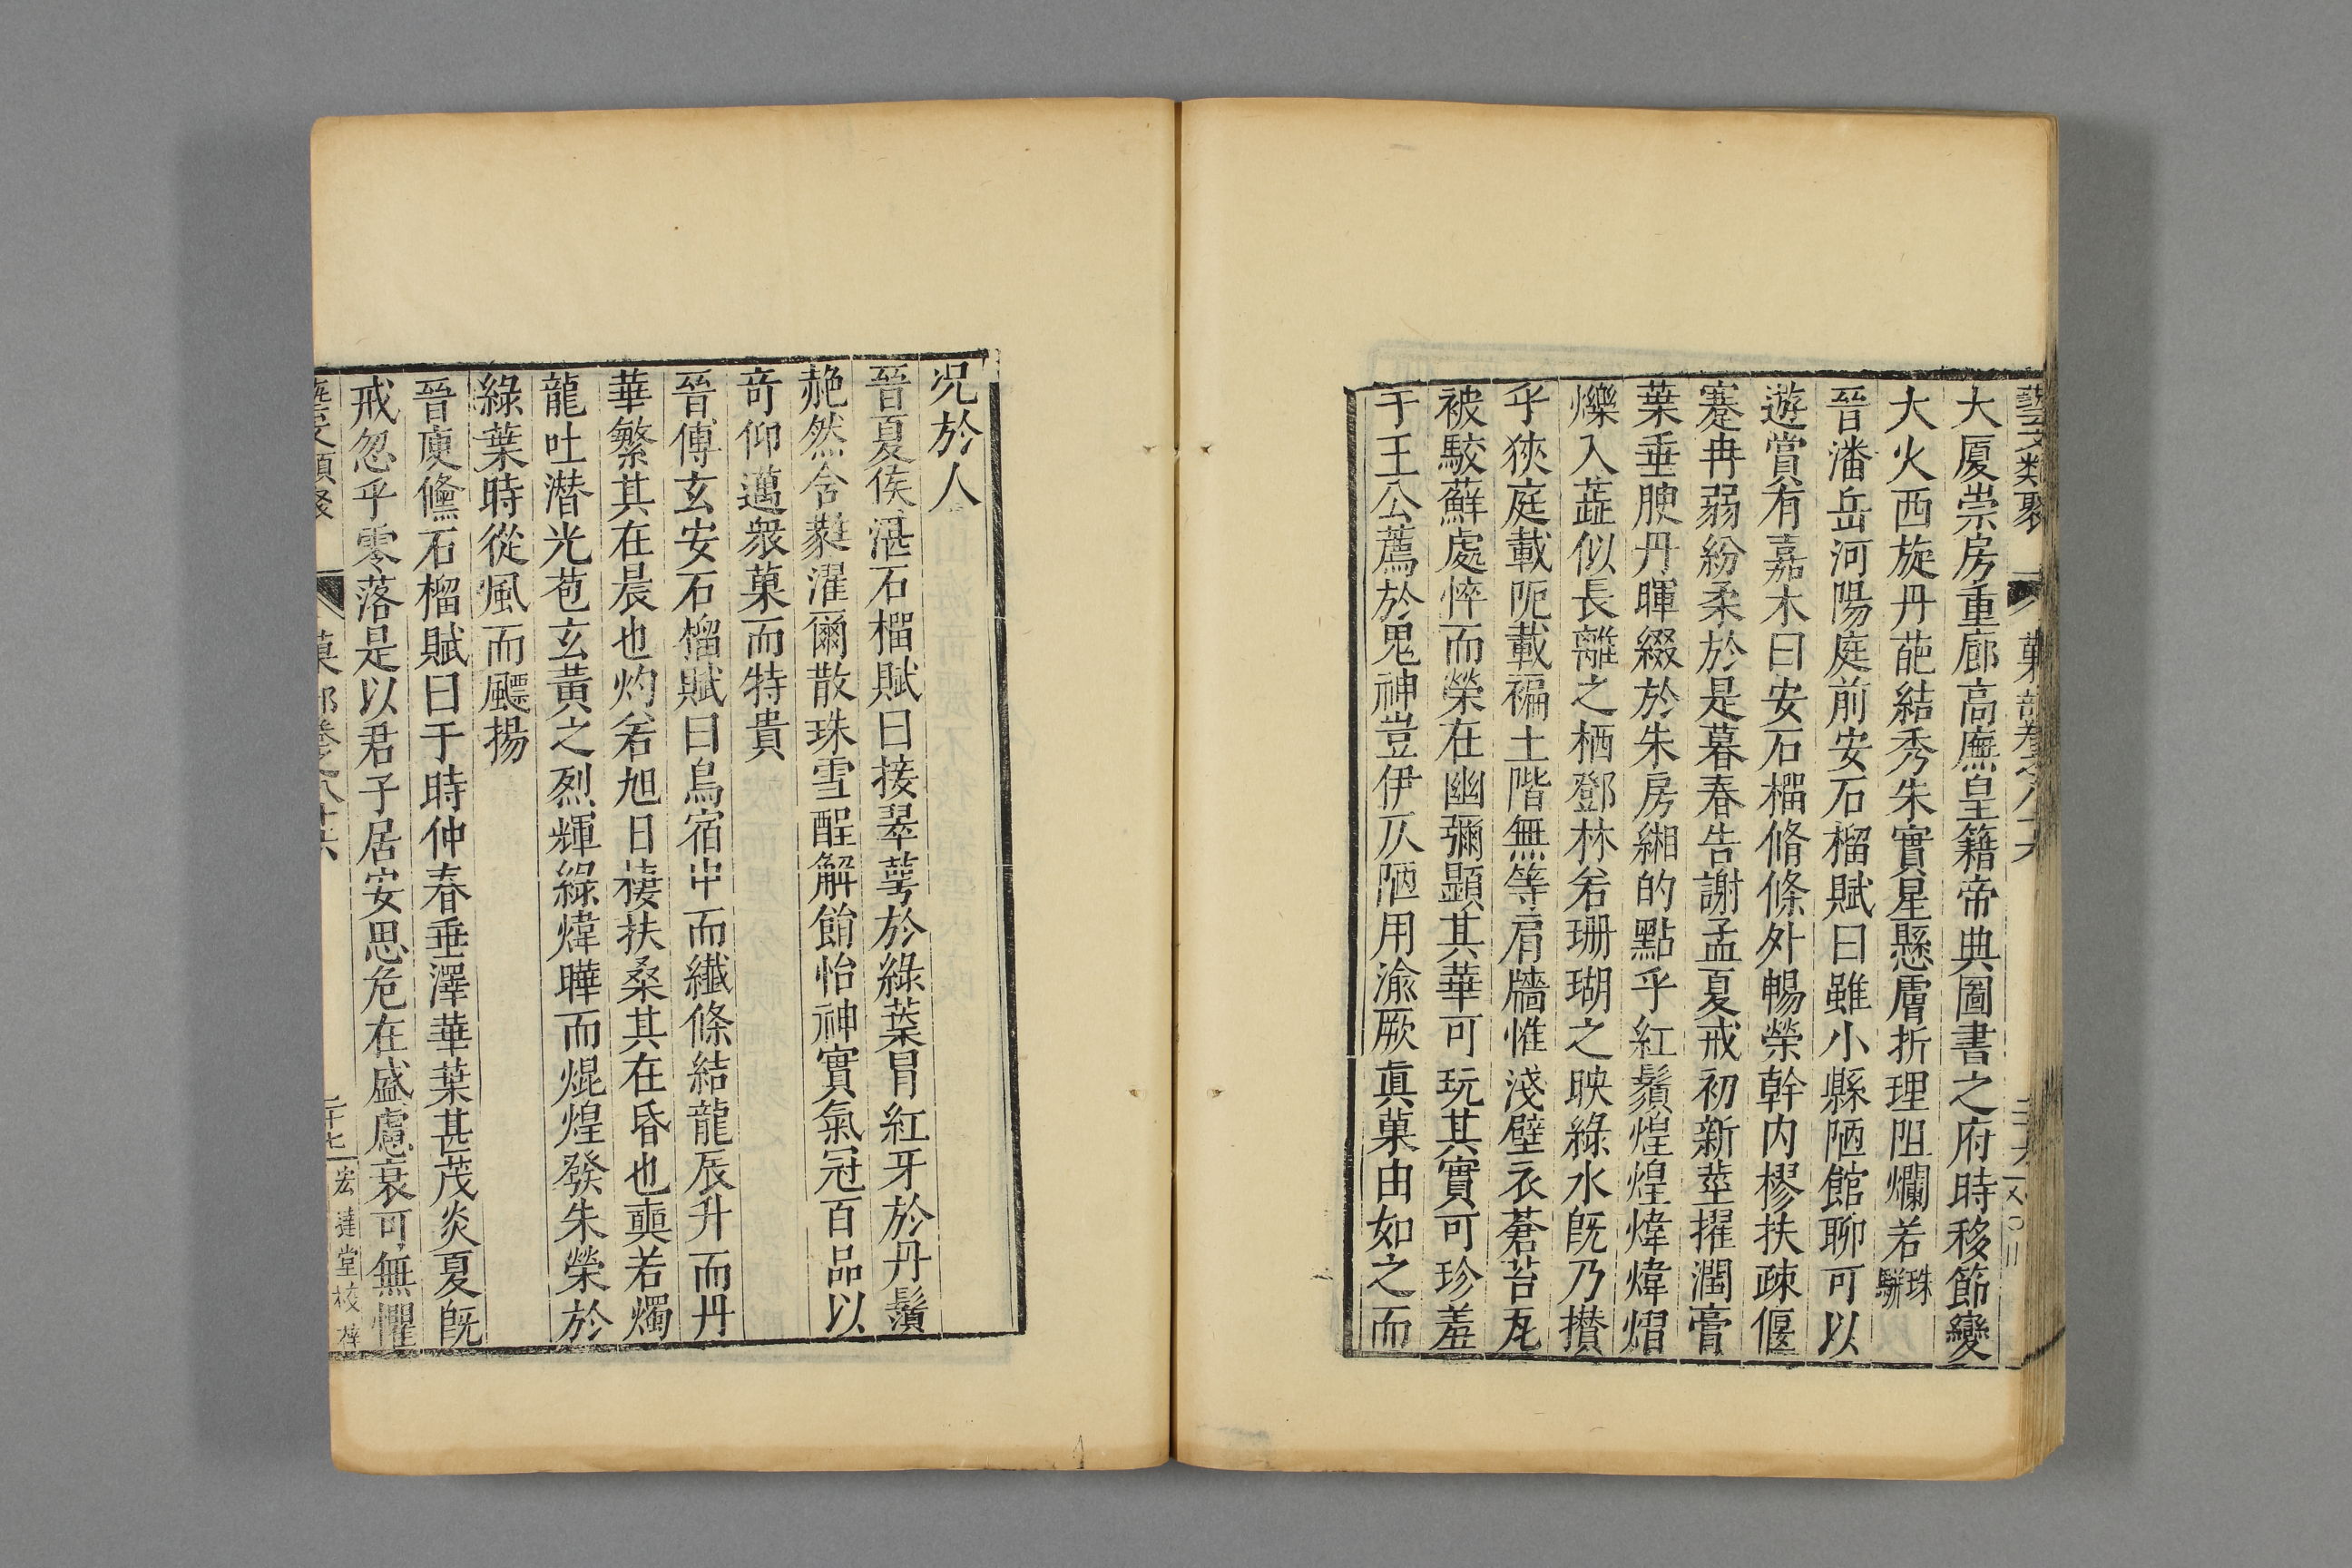 藝文類聚 菓部卷之八十六
大厦崇房重廊高廡皇籍帝典圖書之府時移節變
大火西旋丹葩結秀朱實星懸膚折理阻爛若珠駢
晉潘岳河陽庭前安石榴賦曰雖小縣陋館聊可以
遊賞有嘉木曰安石榴脩條外暢榮幹内樛扶疎偃
蹇冉弱紛柔於是暮春告謝孟夏戒初新莖擢潤膏
葉垂腴丹暉綴於朱房緗的點乎紅鬚煌煌煒煒熠
爍入蕋似長離之栖鄧林若珊瑚之映綠水旣乃攅
乎狹庭載阨載褊土階無等肩牆惟淺壁衣蒼苔瓦
被駮蘚處悴而榮在幽彌顯其華可玩其實可珍羞
于王公薦於鬼神豈伊仄陋用渝厥真菓由如之而
况於人
晉夏侯湛石榴賦曰接翠萼於綠葉冒紅牙於丹鬚
赩然含蕤濯爾散珠雪酲解餶怡神實氣冠百品以
竒仰邁衆菓而特貴
晉傅玄安石榴賦曰鳥宿中而纖條結龍辰升而丹
華繁其在晨也灼若旭日棲扶桑其在昏也奭若燭
龍吐潛光苞玄黃之烈輝綠煒曄而焜煌發朱榮於
綠葉時從風而飈揚
晉庾儵石榴賦曰于時仲春垂澤華葉甚茂炎夏旣
戒忽乎零落是以君子居安思危在盛慮衰可無懼
藝文類聚 菓部卷之八十六 二十七 宏達堂校梓